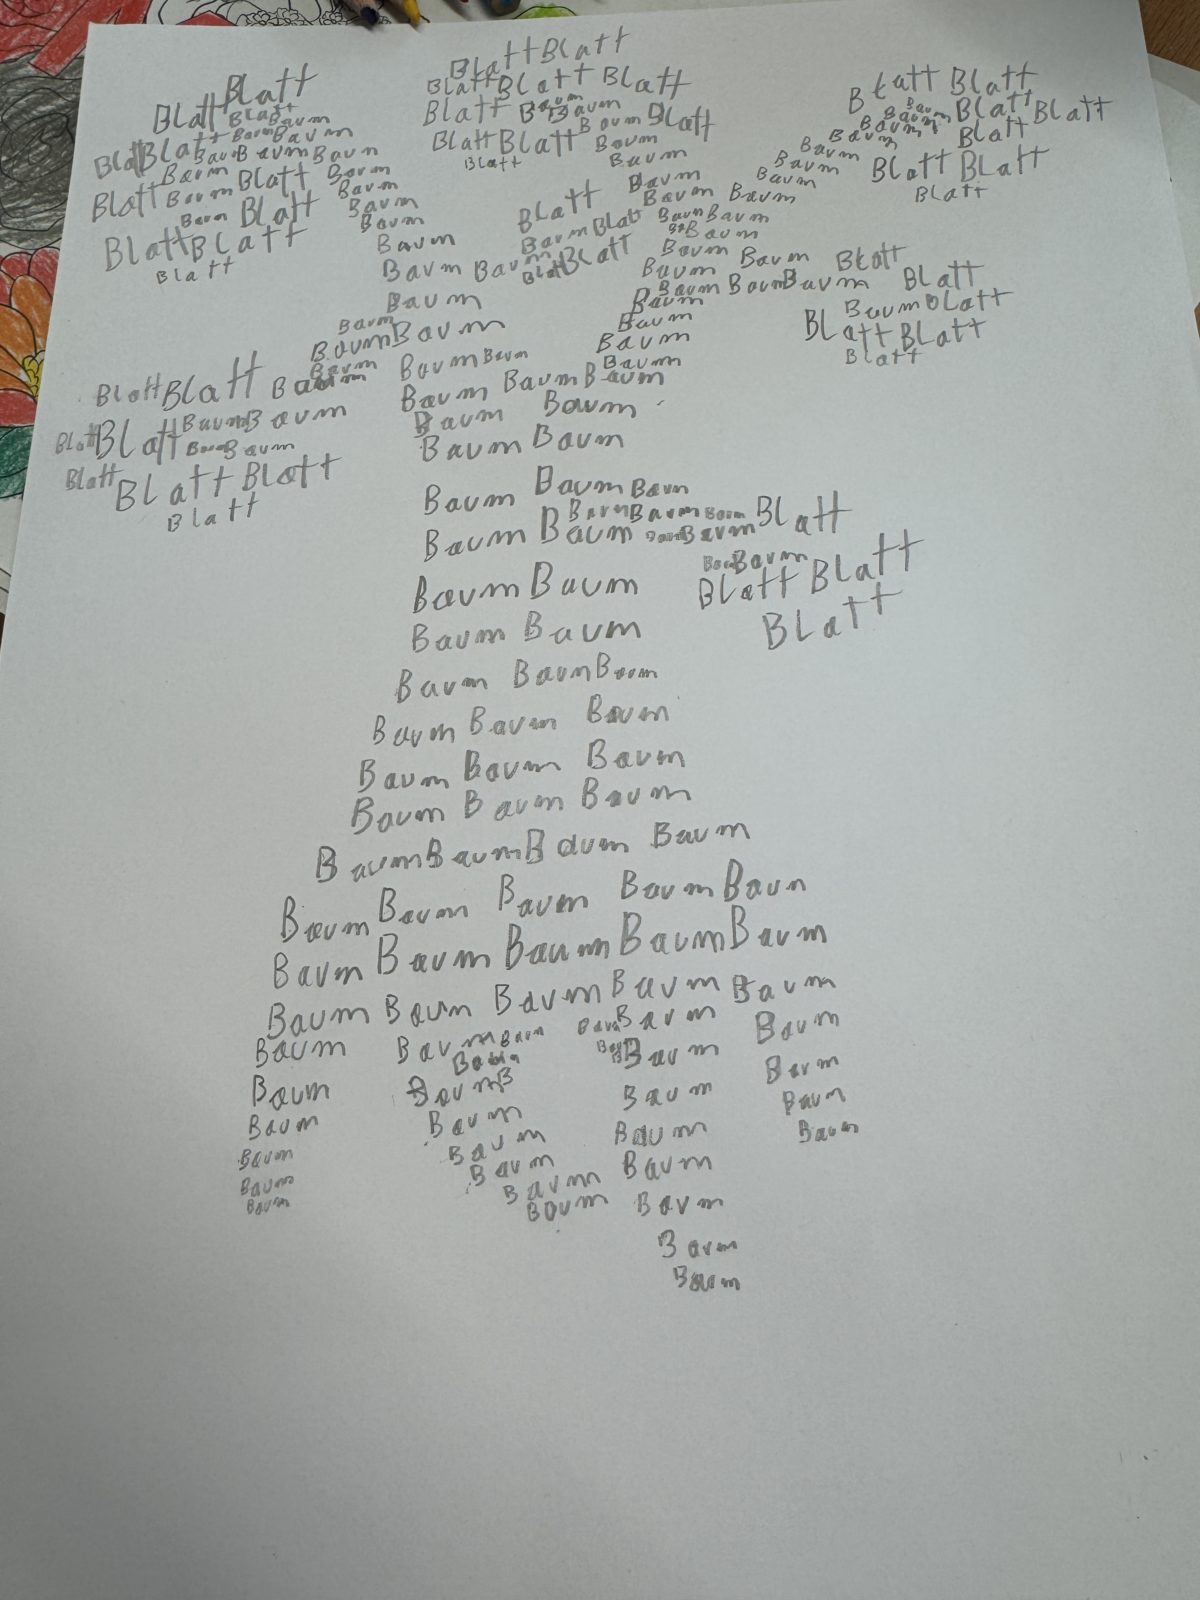 Blatt Blatt
Blatt Blatt Blatt Blatt
Blatt Blatt Blatt
Blatt Blatt Baum Baum Blatt Blatt
Blatt Baum Baum Baum Baum Blatt
Blatt Blatt Baum Baum Blatt Blatt Baum Blatt Baum Baum Blatt
Baum Baum Baum Blatt Baum Baum Baum Blatt Blatt
Blatt Baum Blatt Baum Baum Baum Baum Blatt
Baum Blatt Baum Blatt Baum Baum Baum
Blatt Blatt Baum Baum Blatt Baum Baum
Blatt Baum Baum Blatt Blatt Baum
Baum Baum Baum Blatt
Baum Baum Baum Baum Blatt
Baum Baum Baum Blatt
Baum Baum Baum Blatt Blatt
Baum Baum Baum Baum Blatt
Blatt Blatt Baum Baum Baum Baum Baum
Blatt Blatt Baum Baum Baum Baum
Blatt Baum Baum Baum Baum
Blatt Blatt Blatt
Blatt Baum Baum Baum
Baum Baum Baum Baum Baum Baum Blatt
Baum Baum
Baum Baum Blatt Blatt
Baum Baum Blatt
Baum Baum Baum
Baum Baum Baum
Baum Baum Baum
Baum Baum Baum
Baum Baum Baum Baum
Baum Baum Baum Baum Baum
Baum Baum Baum Baum Baum
Baum Baum Baum Baum Baum
Baum Baum Baum Baum Baum Baum
Baum Baum Baum Baum
Baum Baum Baum Baum
Baum Baum Baum Baum
Baum Baum Baum
Baum Baum Baum
Baum Baum Baum
Baum
Baum
Baum